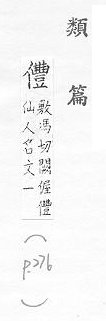 類篇
僼
敷馮切闕偓僼
仙人名文一
(p.276)